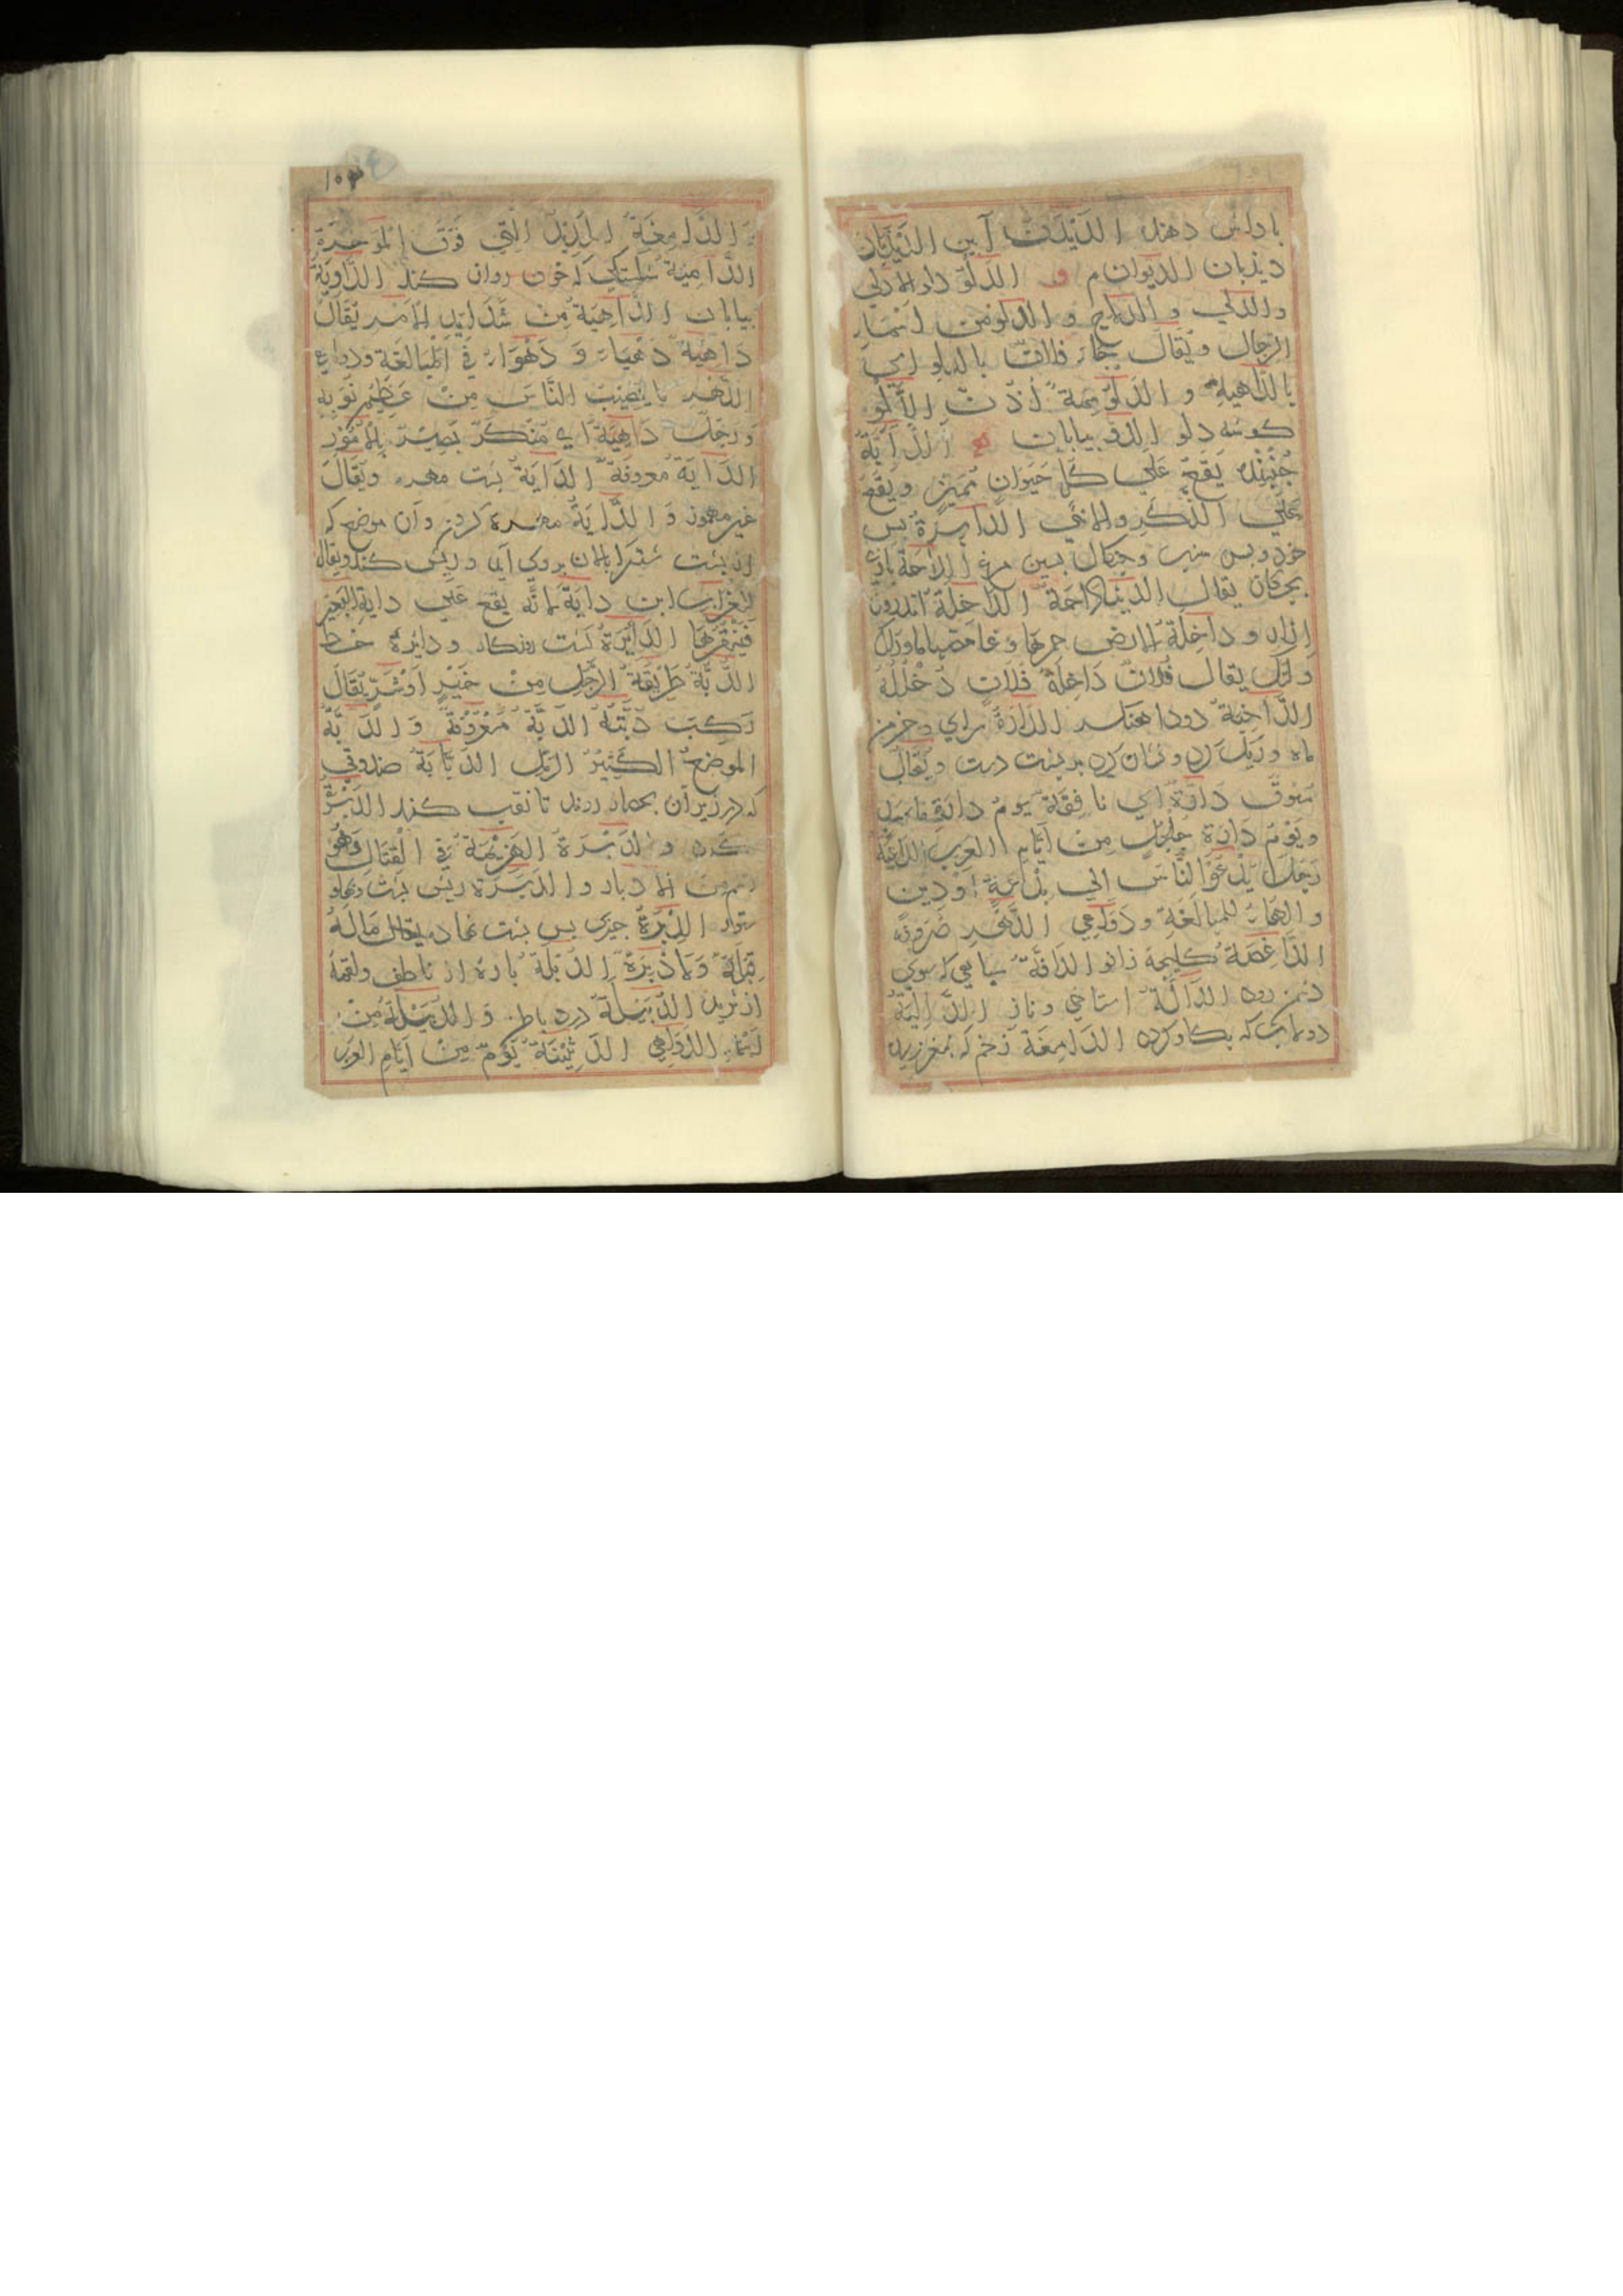 باداش دهنده الدَّيْدَنُ آيين الدَّيْدَبَان
ديذبان الديوان م و الدَّلْوُ دلو الادلي
والدلي و الدلاء و الدلو من اسماء
الرجال ويُقال جاء فلانٌ بالدلو اي
بالداهية و الدلو سمة أُذُنُ الدَّلْوِ
كوشه دلو الدَّوُّ بيابان الدَّابَّةُ
جُنْبَنْده يَقَعُ عَلي كلّ حَيَوانٍ مُمَيِّزٍ ويَقَعُ
عَلَي الذكَرِ والانثي الدابِرَةُ بس
بجكان يقال الدَّاخِلَة اندرون
ازار و داخِلَة الارض خمرها وغامضها
يقال فُلانٌ دَاخِلَةُ فُلانٍ دُخْلُلُهُ
الدَّاخِنَةُ دودآهنك الدَّارَةُ سراي وخرمن
ماه وريك كرد ونشان كرد بر بشت دست ويُقَالُ
سُوقٌ دَارَّةٌ اي نافِقَةٌ يومُ دارَةِ مَاسَلٍ
ويَوْمُ دَارَةِ جُلْجُلٍ مِنْ ايَّامِ العَرَبِ الدَّاعِيَةُ
رَجُلٌ يَدْعُو النَّاسَ الي بِدْعَةٍ أوْ دِين
والهاء للمبالَغَةِ ودَوَاعِي الدَّهْرِ صُرُوفُه
الدَّاغِصَةُ كليجة زانو الدَافَّةُ سباهي كه سوي
دشمن روند الدَّالَّةُ استاخي وناز الدَّالِيَةُ
دولابي كه بكاو كردد الدامِغَةُ زخم كه بمغز رسد
١٥٣
والدَّامِغَةُ الحَدِيدَةُ الَّتِي فَوْقَ المُؤَخَّرَةِ
الدَّامِيَةُ شكستكي كه خون روان كند الدَّاوِيَةُ
بيابان الدَّاهِيَةُ مِنْ شَدَايِدِ الأَمْرِ يُقَالُ
دَاهِيَةٌ دَهْيَاءُ وَ دَهْوَاءُ فِي المُبَالَغَةِ ودواهي
الدَّهْرِ ما يُصِيبُ النَّاسَ مِنْ عَظِيمِ نُوَبِهِ
وَرَجُلٌ دَاهِيَةٌ اي مُنْكَرٌ بَصِيْرٌ بِالأُمُورِ
الدَايَةُ معروفَةٌ الدَايَةُ بشت مهره ويُقَالُ
غير مهموز وَ الدَّايَةُ مهره كردن وآن موضع كه
از بشت شتر كه بالان بروي آيد وريش كند ويقال
لِلغُرابِ ابن دايَةَ لانّه يقع عَلَي دايةِ البَعِيرِ
فَيَنْقُرُهَا الدَّائِرَةُ كشت روزكار ودايرهٔ خط
الدُّبَّةُ طَرِيقَةُ الرَّجُلِ مِنْ خَيْرٍ اَوْ شَرٍّ يُقَالُ
رَكِبَ دُبَّتَهُ الدَبَّةُ مَعْرُوفَةٌ وَ الدَبَّةُ
الموضعُ الكَثِيرُ الرَمْلِ الدَبَّابَةُ صندوقي
كه در زير آن بحصار روند تا نقب كنند الدَّبْرَةُ
كرد و الدَبْرَةُ الهَزِيْمَةُ فِي القِتَالِ وَهُوَ
اسم من الادبار والدَبَرَةُ ريش بشت
ستور الدِّبْرَةُ جيزي بس بشت نهاده يقال مَالَهُ
قِبْلَةٌ وَلادِبْرَةٌ الدُبْلَةُ باره از ناطف ولقمه
از ثريد الدُّبَيْلَةُ درد باطن وَ الدُبَيْلَةُ مِنْ
اسْمَاءِ الدَّوَاهِي الدَثِيْنَةُ يَوْمٌ مِنْ اَيَّامِ العَرَبِ